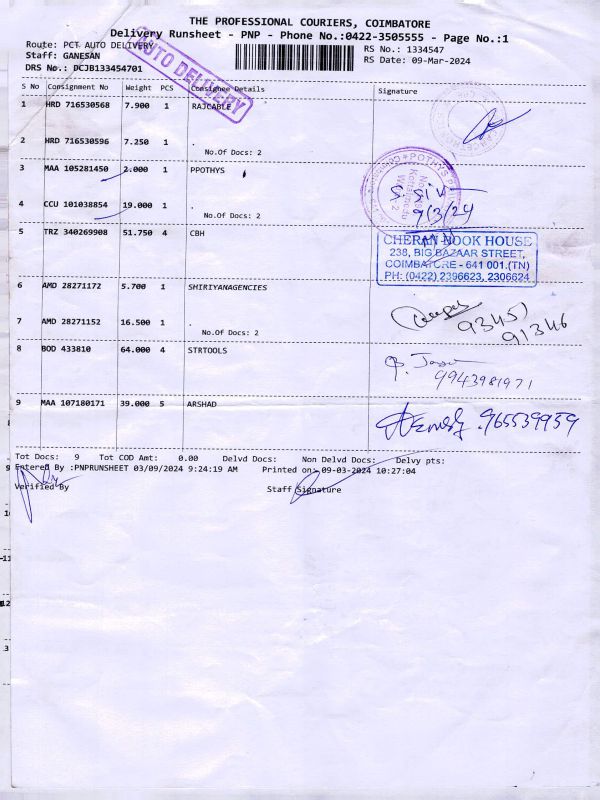 THE PROFESSIONAL COURIERS, COIMBATORE
Delivery Runsheet - PNP - Phone No.:0422-3505555 - Page No.:1
Route: PCT AUTO DELIVERY RS No.: 1334547
Staff: GANESAN RS Date: 09-Mar-2024
DRS No.: DCJB133454701
AUTO DELIVERY
S No Consignment No Weight PCS Consignee Details Signature
1 HRD 716530568 7.900 1 RAJCABLE
2 HRD 716530596 7.250 1 .
No.Of Docs: 2
3 MAA 105281450 2.000 1 PPOTHYS
4 CCU 101038854 19.000 1 .
No.Of Docs: 2
9/3/24
5 TRZ 340269908 51.750 4 CBH
CHERAN BOOK HOUSE
238, BIG BAZAAR STREET,
COIMBATORE - 641 001.(TN)
PH: (0422) 2396623, 2306624
6 AMD 28271172 5.700 1 SHIRIYANAGENCIES
7 AMD 28271152 16.500 1 .
No.Of Docs: 2
93457
91346
8 BOD 433810 64.000 4 STRTOOLS
9943981971
9 MAA 107180171 39.000 5 ARSHAD
965539959
Tot Docs: 9 Tot COD Amt: 0.00 Delvd Docs: Non Delvd Docs: Delvy pts:
Entered By :PNPRUNSHEET 03/09/2024 9:24:19 AM Printed on:-09-03-2024 10:27:04
Verified By Staff Signature